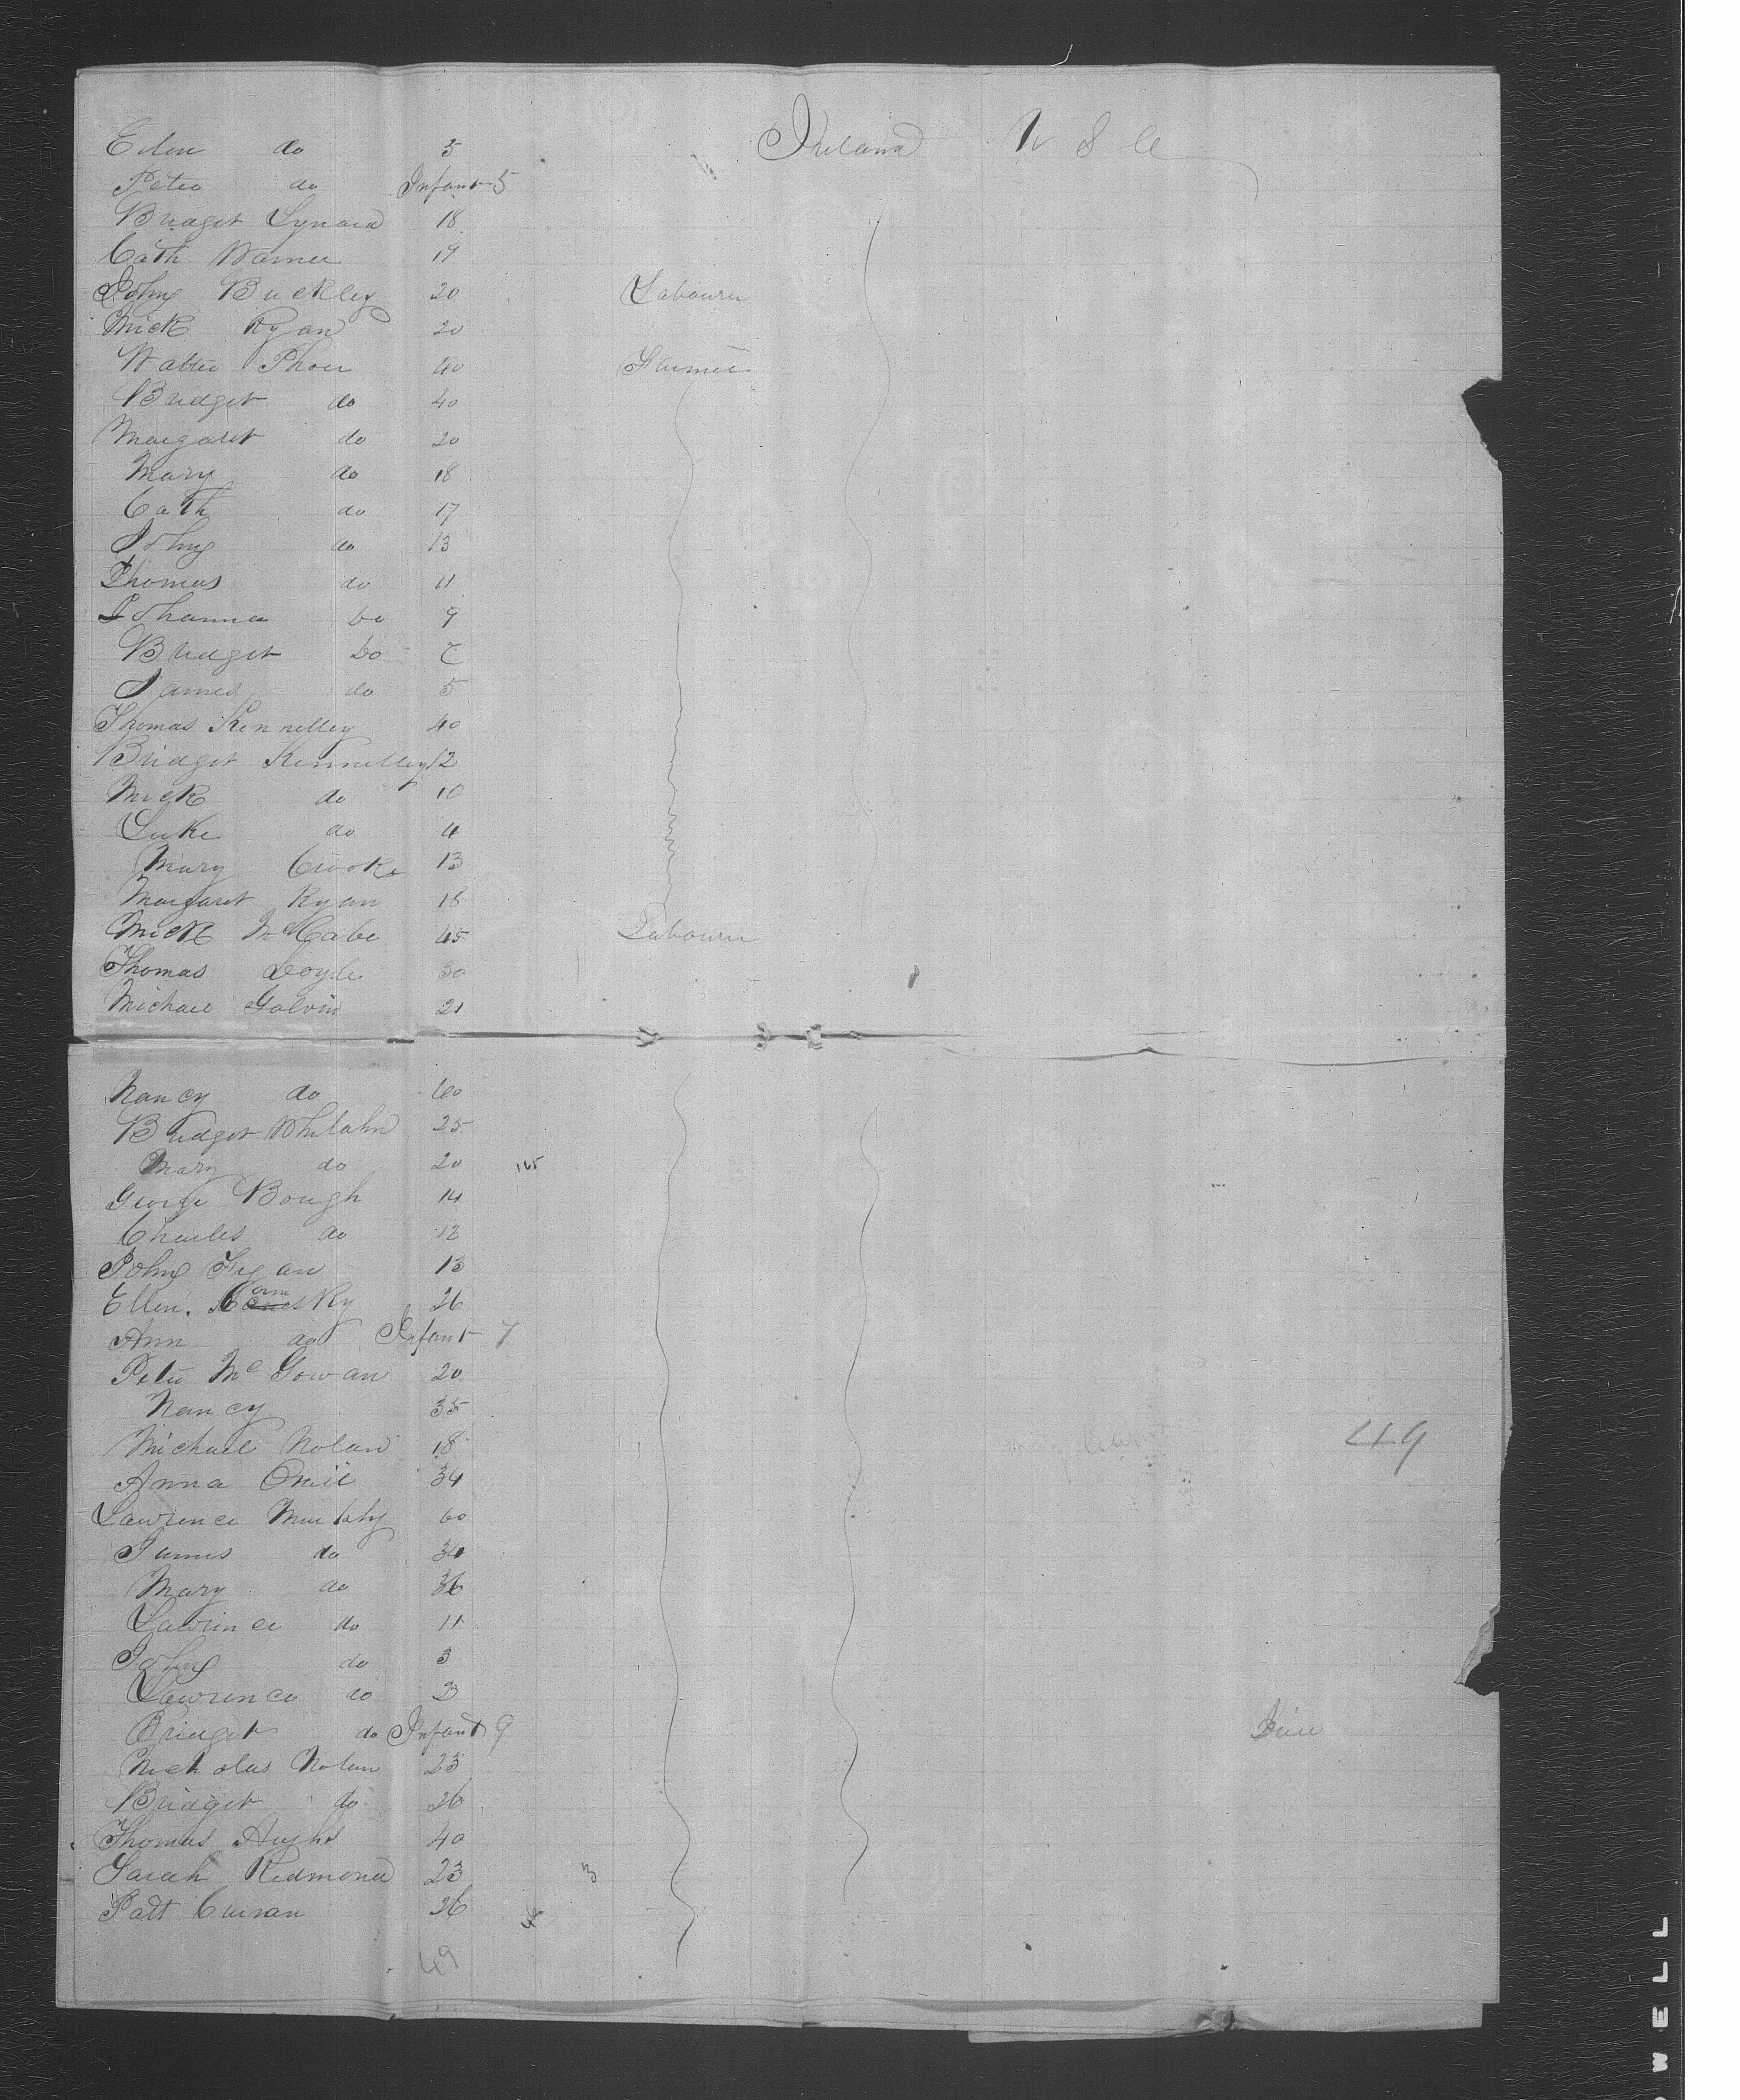 Ellen do 5 Ireland U S a
Peter do Infant 5
Bridget Lynard 18
Cath Warner 19
John Buckley 20 Labourer
Mick Ryan 20
Walter Phour 40 Farmer
Bridget do 40
Margaret do 20
Mary do 18
Cath do 17
John do 13
Thomas do 11
Johanna do 9
Bridget do 7
James do 5
Thomas Kennelley 40
Bridget Kennelley 12
Mick do 10
Luke do 4
Mary Crooke 13
Margaret Ryan 18
Mick McCabe 45 Labourer
Thomas Doyle 30
Michael Galvin 21
Nancy do 60
Bridget Whelahn 25
Mary do 20 165
George Bough 14
Charles do 12
John Fegan 13
Ellen 26
Ann do Infant 7
Peter Mc Gowan 20
Nancy 35
Michael Nolan 18 49
Anna Oneil 34
Lawrence Murtahy 60
James do 34
Mary do 36
Lawrence do 11
John do 3
Lawrence do 2
Bridget do Infant 9
Nicholas Nolan 23
Bridget do 26
Thomas Hughs 40
Sarah Redmond 23 3
Patt Curran 26 46
49
WELL